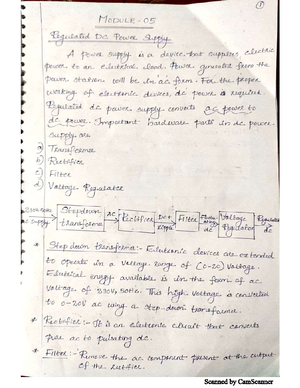 1
MODULE-05
Regulated DC Power Supply
A power supply is a device that supplies electric
power to an electrical load. Power generated from the
power station will be in ac form. For the proper
working of electronic devices, dc power is required
Regulated dc power supply converts ac power to
dc power. Important hardware parts in dc power
supply are
a) Transformer
b) Rectifier
c) Filter
d) Voltage Regulator
Step down transformer
AC
Rectifier
DC + Ripple
Filter
Voltage Regulator
Regulated dc
* Step down transformer:- Electronic devices are
to operate in a voltage range of voltage.
Electrical energy available is in the form of ac
voltage of 230V, 50Hz. This high voltage is converted
to 0-20V ac using a step down transformer.
* Rectifier:- It is an electronic circuit that converts
pure ac to pulsating dc.
* Filter:- Remove the ac component present at the output
of the rectifier.
Scanned by CamScanner